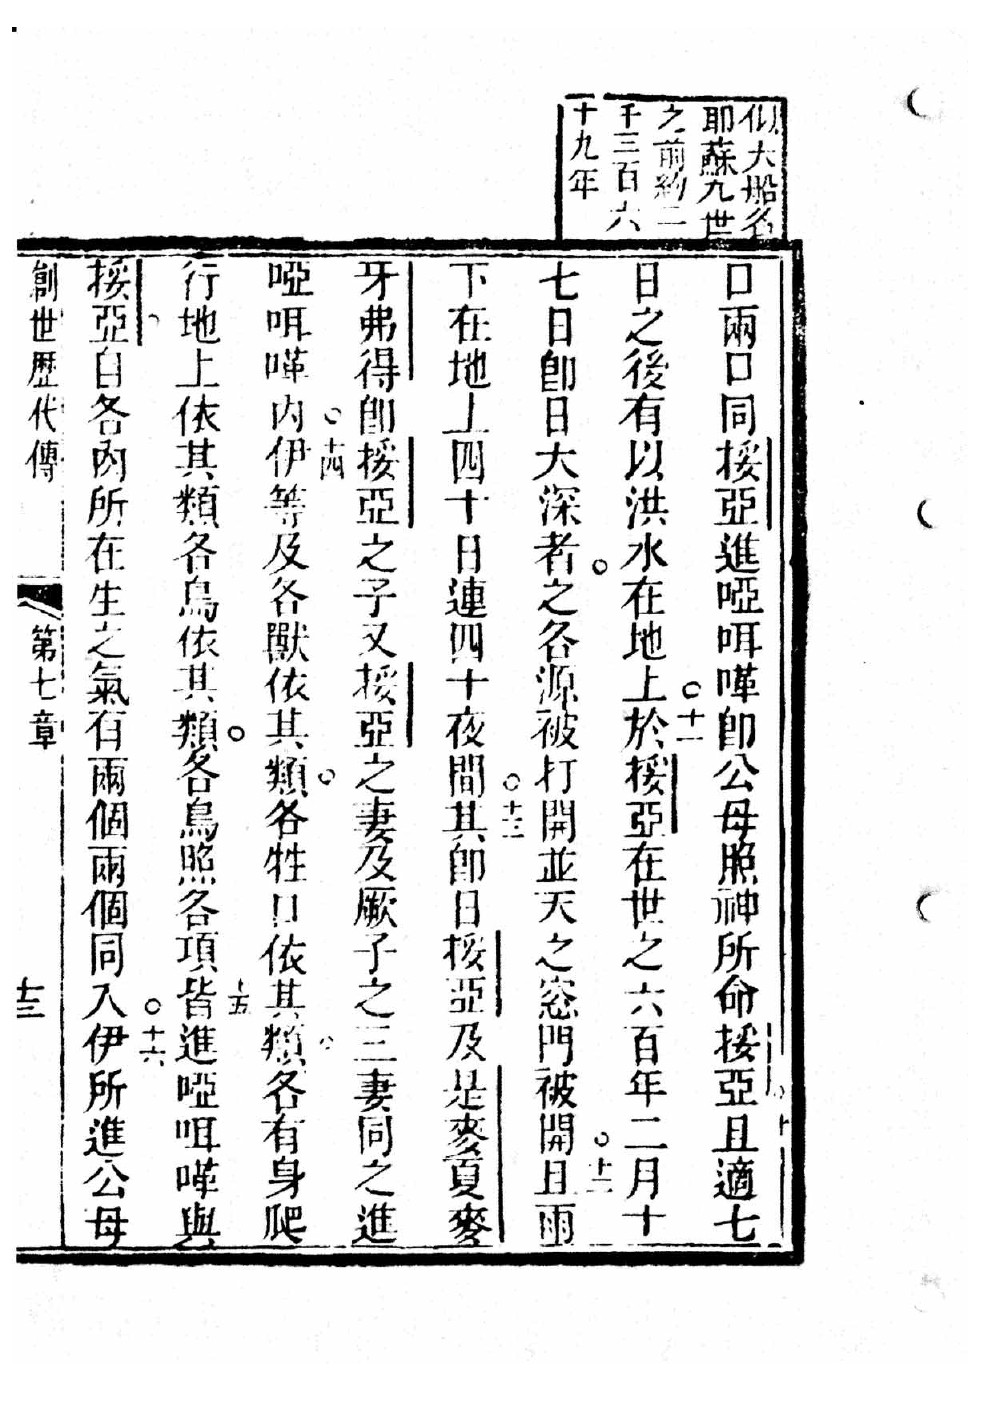 似大船名
耶蘇凢世
之前約二
千三百六
十九年
口兩口同挼亞進啞咡嗶卽公母照神所命挼亞且適七
十
日之後有以洪水在地上於挼亞在世之六百年二月十
十一
七日卽日大深者之各源被打開並天之窓門被開且雨
十二
下在地上四十日連四十夜間其卽日挼亞及是麥夏麥
十三
牙弗得卽挼亞之子又挼亞之妻及厥子之三妻同之進
啞咡嗶內伊等及各獸依其類各牲口依其類各有身爬
十四
行地上依其類各鳥依其類各鳥照各項皆進啞咡嗶與
十五
挼亞自各肉所在生之氣有兩個兩個同入伊所進公母
十六
創世歷代傳
第七章
十三